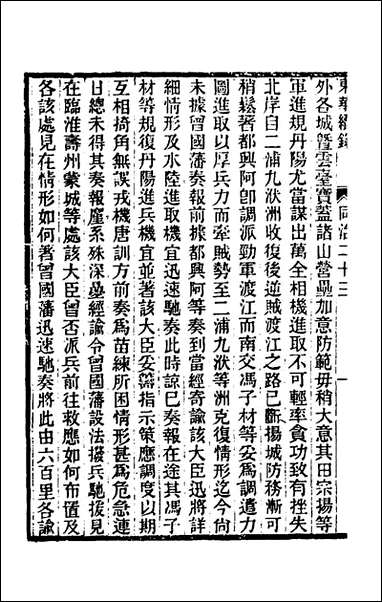 東華續錄 同治二十三
外各城曁雲臺寶蓋諸山營壘加意防範毋稍大意其田宗揚等
軍進規丹陽尤當謀出萬全相機進取不可輕率貪功致有挫失
北岸自二浦九洑洲收復後逆賊渡江之路已斷揚城防務漸可
稍鬆著都興阿卽調派勁軍渡江而南交馮子材等妥爲調遣力
圖進取以厚兵力而牽賊勢至二浦九洑等洲克復情形迄今尙
未據曾國藩奏報前據都興阿等奏到當經奇諭該大臣迅將詳
細情形及水陸進取機宜迅速馳奏此時諒已奏報在途其馮子
材等規復丹陽進兵機宜並著該大臣妥籌指示策應調度以期
互相掎角無誤戎機唐訓方前奏爲苗練所困情形甚爲危急連
日總未得其奏報廑系殊深疊經諭令曾國藩設法撥兵馳援見
在臨淮壽州蒙城等處該大臣曾否派兵前往救應如何布置及
各該處見在情形如何著曾國藩迅速馳奏將此由六百里各諭